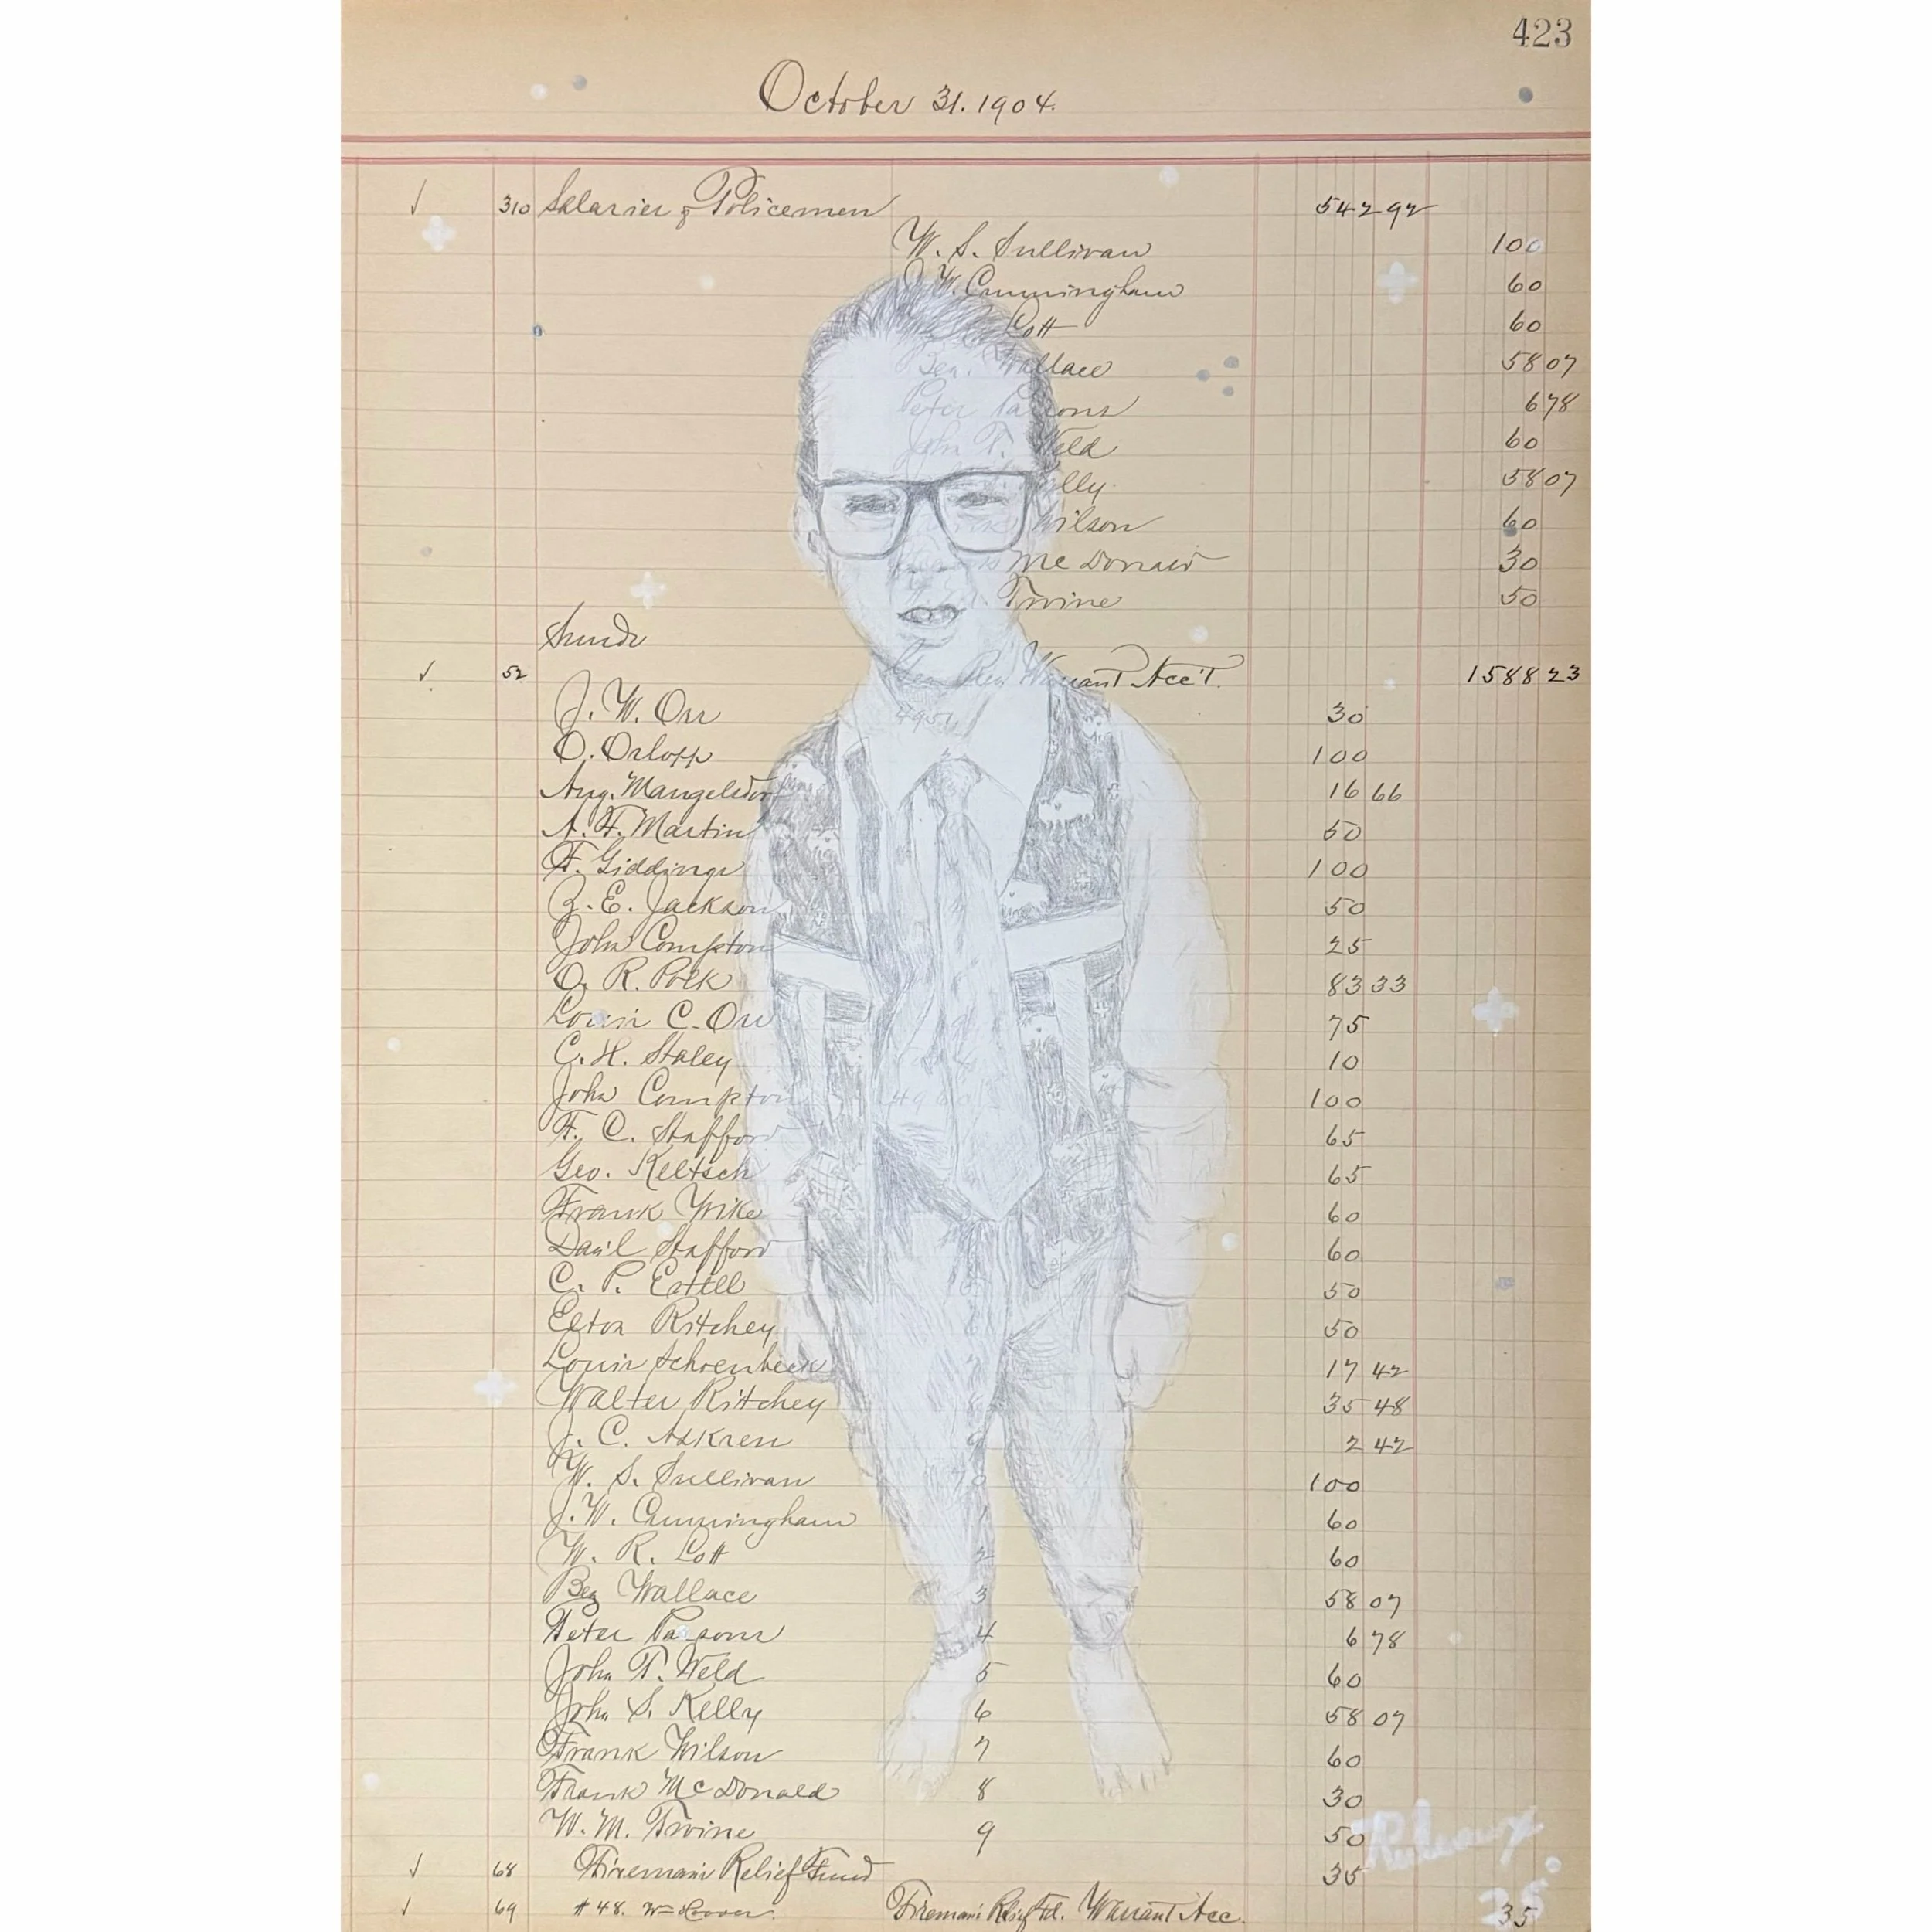 423
October 31. 1904.
✓ 310 Salaries of Policemen 542 92
W. S. Sullivan 100
J. W. Cunningham 60
Lott 60
Ben. Wallace 58 07
Peter Parsons 6 78
John T. Weld 60
lly 58 07
Wilson 60
McDonald 30
Irvine 50
Sunds
✓ 52 Gen Rev Warrant Acc't. 1588 23
J. W. Orr 4951 30
O. Orlopp 100
Aug. Mangelsdor 16 66
A. F. Martin 50
F. Giddings 100
Z. E. Jackson 50
John Compton 25
O. R. Polk 83 33
Louis C. Orr 75
C. H. Staley 10
John Compton 100
F. C. Stafford 65
Geo. Keltsch 65
Frank Wike 60
Danl Stafford 60
C. P. Estell 50
Elton Ritchey 50
Louis Schoenbeck 17 42
Walter Ritchey 35 48
J. C. Askren 2 42
W. S. Sullivan 70 100
J. W. Cunningham 1 60
W. R. Lott 2 60
Ben Wallace 3 58 07
Peter Parsons 4 6 78
John T. Weld 5 60
John S. Kelly 6 58 07
Frank Wilson 7 60
Frank McDonald 8 30
W. M. Irvine 9 50
✓ 68 Firemans Relief Fund 35
✓ 69 #48. Wm Hoover Firemans Relief Fd. Warrant Acc. 35